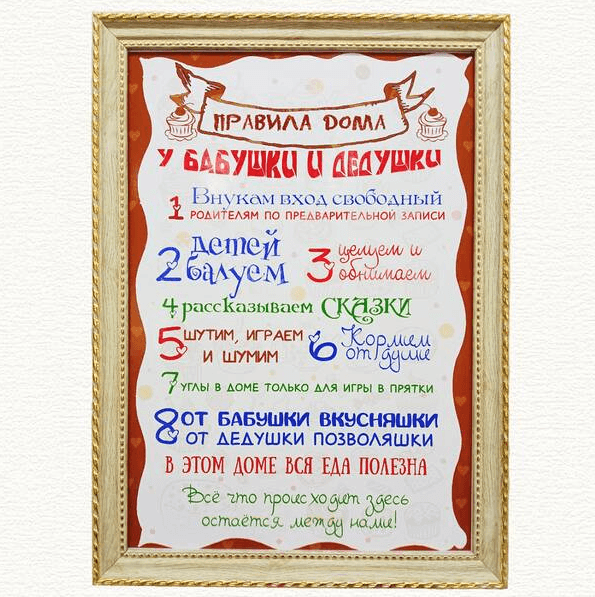 ПРАВИЛА ДОМА
У БАБУШКИ И ДЕДУШКИ
1 Внукам вход свободный
РОДИТЕЛЯМ ПО ПРЕДВАРИТЕЛЬНОЙ ЗАПИСИ
2 детей
балуем
3 целуем и
обнимаем
4 рассказываем СКАЗКИ
5 ШУТИМ, ИГРАЕМ
И ШУМИМ
6 Кормим
от души
7 УГЛЫ В ДОМЕ ТОЛЬКО ДЛЯ ИГРЫ В ПРЯТКИ
8 ОТ БАБУШКИ ВКУСНЯШКИ
ОТ ДЕДУШКИ ПОЗВОЛЯШКИ
В ЭТОМ ДОМЕ ВСЯ ЕДА ПОЛЕЗНА
Всё что происходит здесь
остаётся между нами!